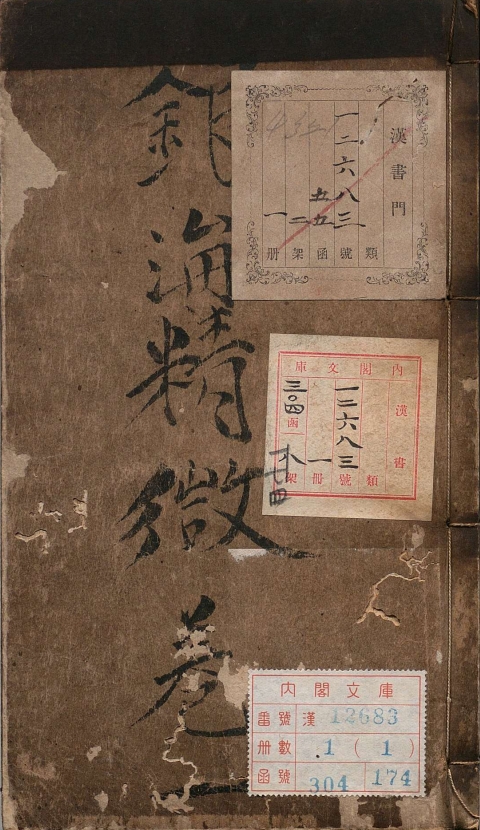 銀海精微 卷一
漢書門
類
一二六八三號
五五函
二架
一册
内閣文庫
漢書
類
一二六八三號
一冊
三〇四函
架
内閣文庫
番號 漢 12683
册數 1 ( 1 )
函號 304 174